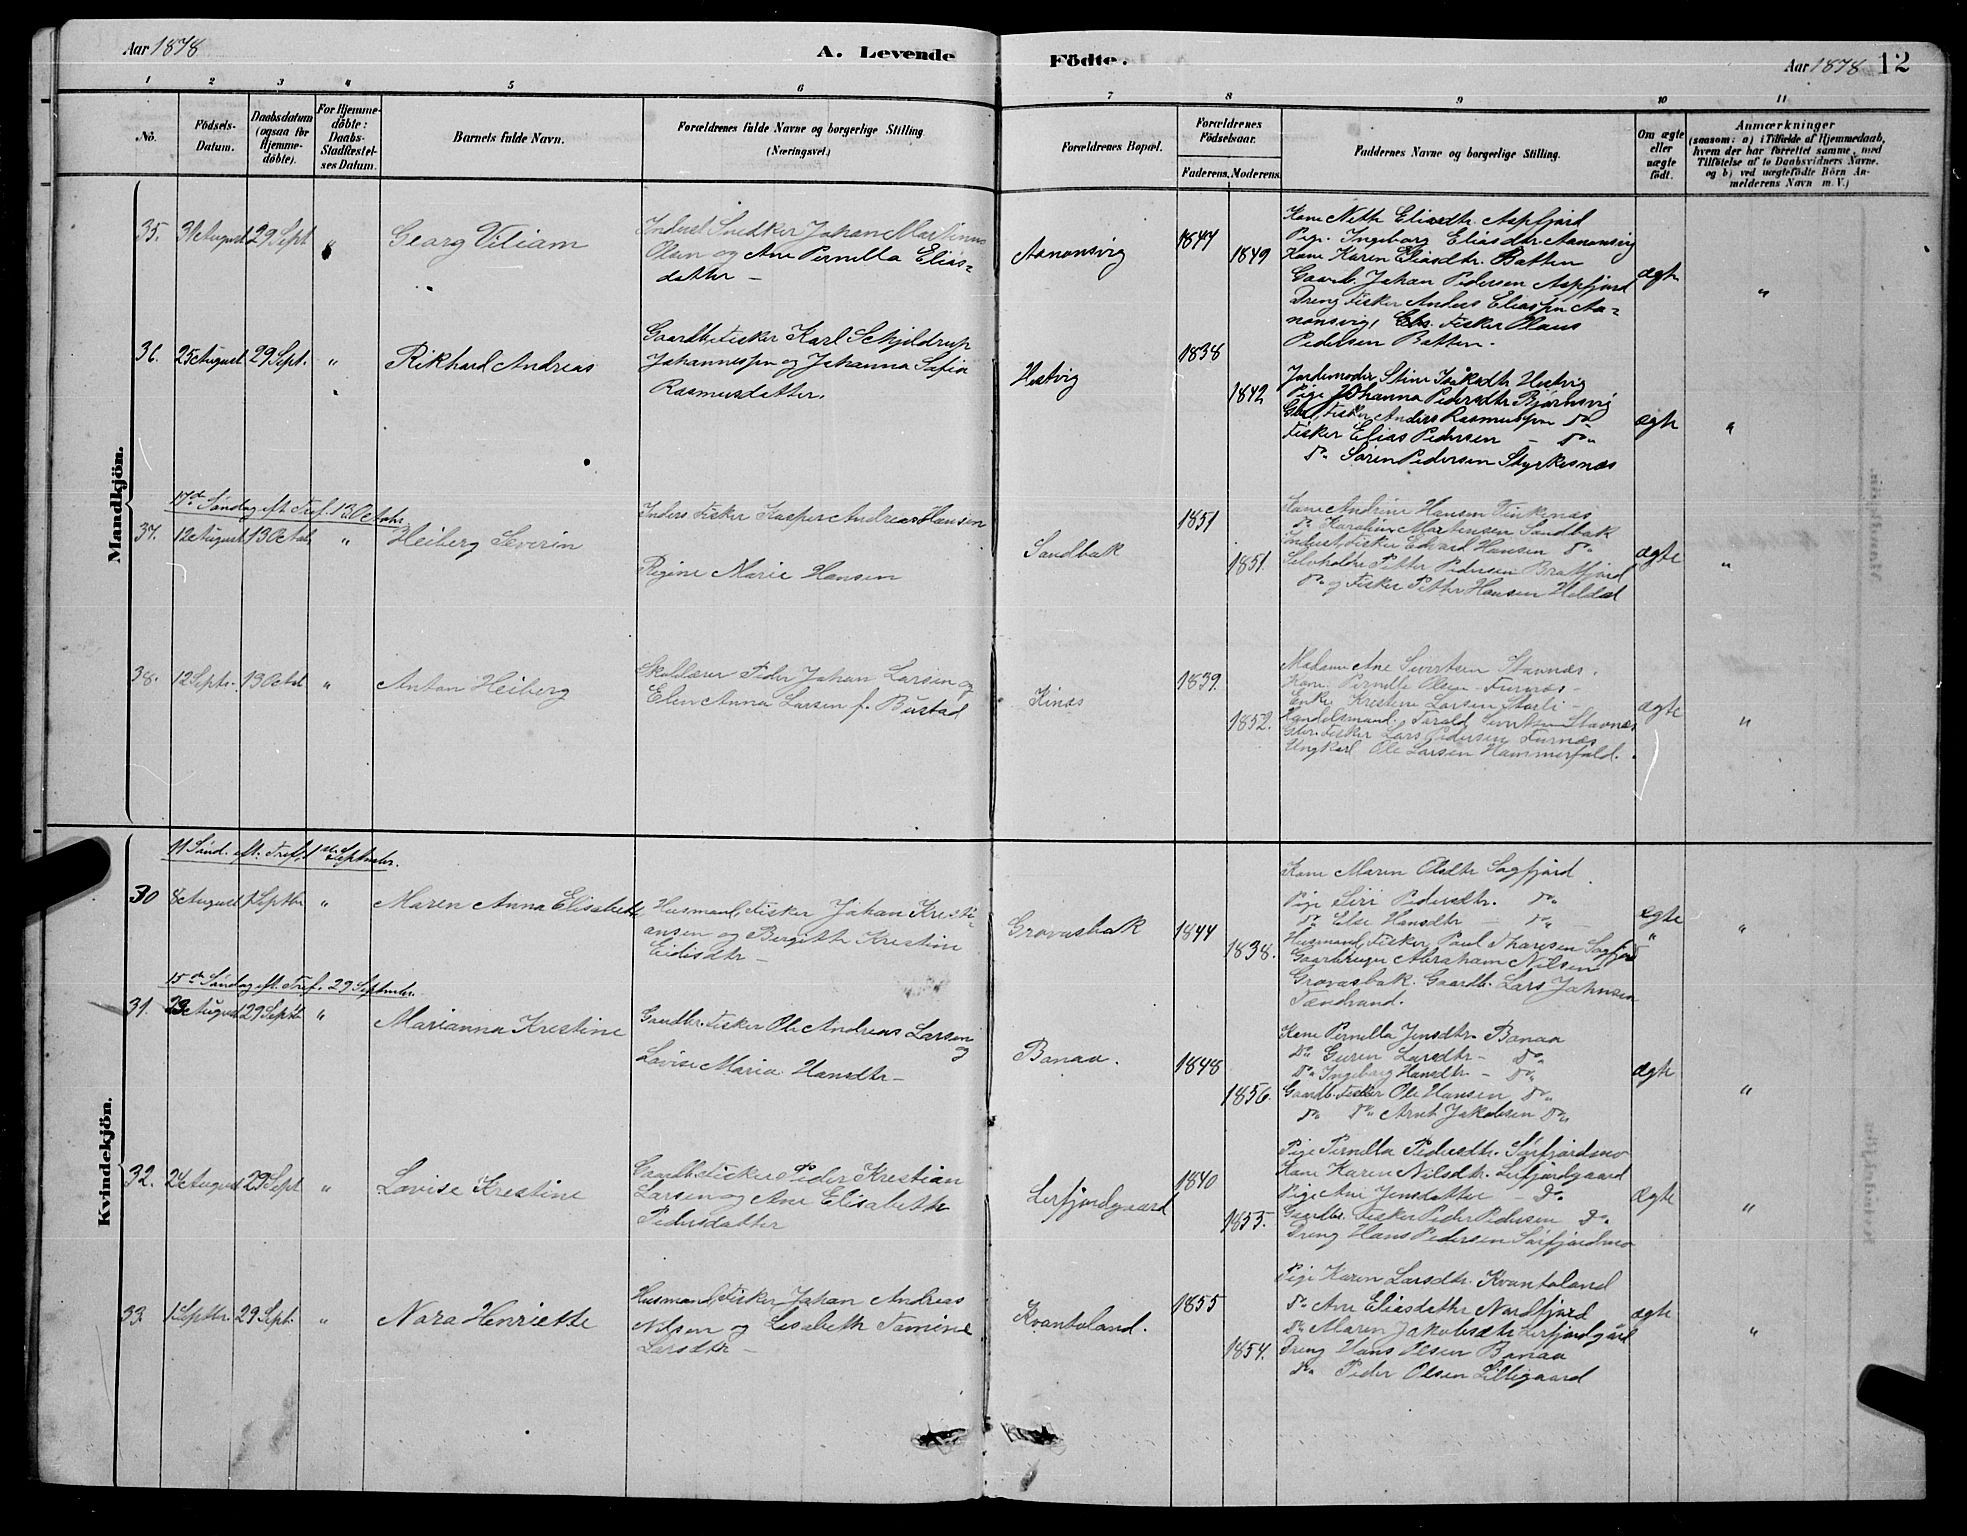 Aar 1878
A. Levende
Födte.
Aar 1878 12
1 2 3 4 5 6 7 8 9 10 11
No.
Födsels-
Datum.
Daabsdatum
(ogsaa for
Hjemme-
döbte).
For Hjemme-
döbte:
Daabs-
Stadfæstel-
ses Datum.
Barnets fulde Navn.
Forældrenes fulde Navne og borgerlige Stilling
(Næringsvei.)
Forældrenes Bopæl.
Forældrenes
Födselsaar.
Faderens. Moderens.
Faddernes Navne og borgerlige Stilling.
Om ægte
eller
uægte
födt.
Anmærkninger
(saasom: a) i Tilfælde af Hjemmedaab,
hvem der har forrettet samme, med
Tilföielse af to Daabsvidners Navne.
og b) ved uægtefödte Börn An-
melderens Navn m. V.)
Mandkjön.
35. 31 August 29 Sept " Georg Viliam
Inderst Snedker Johan Martinus
Olsen og Ane Pernilla Elias=
datter –
Aanonsvig
1847
1849
Kone Neth Eliasdtr. Aspfjord
Pige Ingeborg Eliasdtr. Aanonsvig
Kone Karen Eliasdtr. Batten
Gaardb. Johan Pedersen Aspfjord
Dreng Fisker Anders Eliassen Aa=
nonsvig, Gbr. Fisker Olaus
Pedersen Batten.
ægte
"
36. 25 August 29 Sept. " Rikhard Andreas
Gaardb. Fisker Karl Schjeldrup
Johannessen og Johanna Sofia
Rasmusdatter.
Hestvig
1838
1842
Jordemoder Stine Isaksdtr Hestvig
Pige Johanna Pedersdtr Bjørnsvig
Gbr, Fisker Anders Rasmussen Do
Fisker Elias Pedersen – Do"
Do Søren Pedersen Styrkesnæs
ægte
"
17de Søndag eft. Tref. 13 Octobr.
37. 12 August 13 Octob. " Heiberg Severin
Inders Fisker Kasper Andreas Hansen
Regine Marie Hansen
Sandbak
1851
1851.
Kone Andrine Hansen Finknæs
Do Karoline Martensen Sandbak
Inderst, Fisker Edvard Hansen Do
Selvholdr Petter Pedersen Bratfjord
Do og Fisker Petter Hansen Heldal
ægte
"
38. 12 Septr. 13 Octob " Anton Heiberg
Skolelærer Peder Johan Larsen og
Elen Anna Larsen f. Bustad
Kinæs
1839.
1852.
Madame Ane Sivertsen Stavnæs.
Kone Pernille Olsen – Furnæs –
Enke Krestine Larsen Storli –
Handelsmand. Sivertsen Stavnæs
Gbr. Fisker Lars Pedersen Furnæs
Ungkarl Ole Larsen Hammerfald.
ægte
"
Kvindekjön.
11 Sønd. eft. Tref. 1ste September.
30 8 August 1 Septbr " Maren Anna Elisabeth
Husmand, Fisker Johan Kristi
ansen og Bergitte Krestine
Eidisdtr –
Grovasbak
1844
1838.
Kone Maren Olsdtr Sagfjord
Pige Siri Pedersdtr. Do"
Do Else Hansdtr – Do"
Husmand, Fisker Paul Tharesen Sagfjord
Gaardbruger Abraham Nilsen
Grovasbak. Gaardb. Lars Johnsen
Tendvand.
ægte
"
"
15de Søndag eft. Tref. 29 September.
31. 23 August 29 Septbr " Marianna Krestine
Gaardbr. Fisker Ole Andreas Larsen
og
Lovise Maria Hansdtr –
Bonaa.
1848
1856.
Kone Pernilla Jensdtr – Bonaa
Do Guren Larsdtr – Do"
Do Ingeborg Hansdtr – Do"
Gaardb. Fisker Ole Hansen Do"
Do Do" Arnt Jakobsen Do"
ægte
"
32. 24 August 29 Sept " Lovise Krestine
Gaardb. Fisker Peder Krestian
Larsen og Ane Elisabeth
Pedersdatter
Leifjordgaard
1840
1855.
Pige Pernilla Pedersdtr. Sørfjordmo
Kone Karen Nilsdtr. Leifjordgaard
Pige Ane Jensdatter – Do
Gaardbr. Fisker Peder Pedersen Do.
Dreng Hans Pedersen Sørfjordmo
ægte
"
33. 1 Septbr. 29 Sept. " Nora Henriette
Husmand, Fisker Johan Andreas
Nilsen og Lisabeth Tomine
Larsdtr –
Kvantoland.
1855
1854.
Pige Karen Larsdtr. Kvantoland
Do Ane Eliasdatter Nordfjord
Do Maren Jakobsdtr Leifjordgård
Dreng Hans Olsen Bonaa
Do Peder Olsen Lillegaard
ægte
"